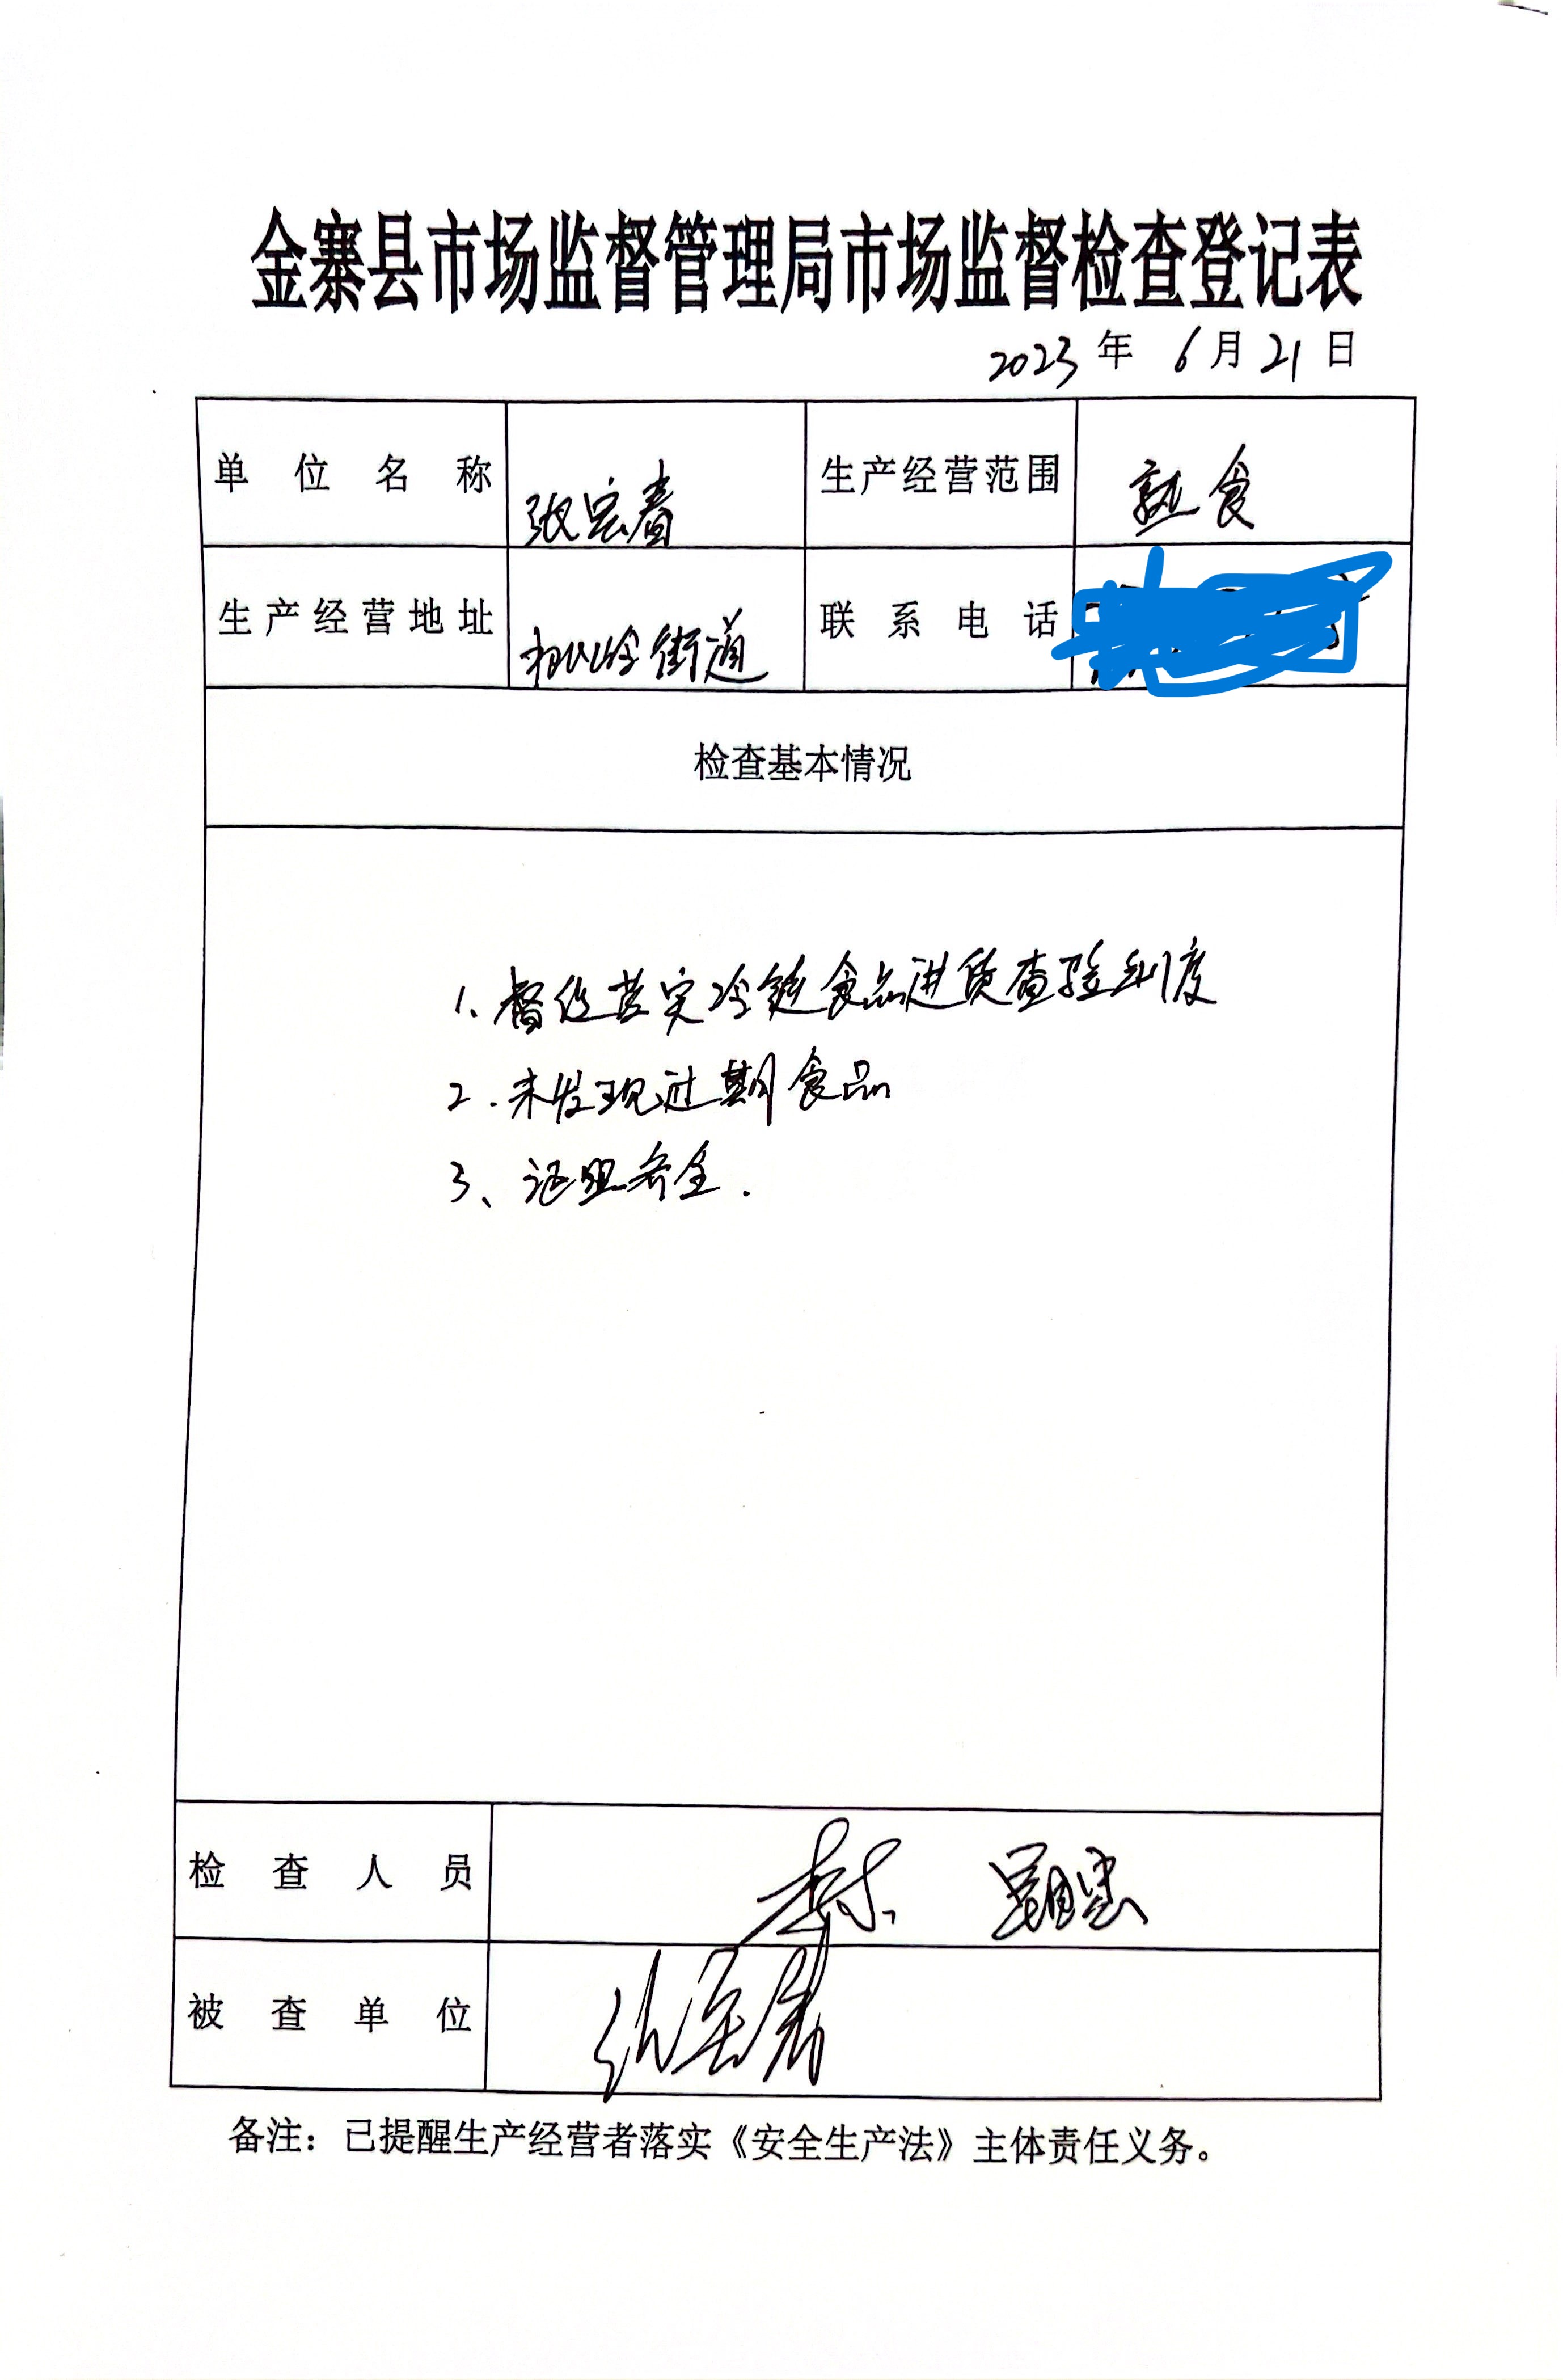 金寨县市场监督管理局市场监督检查登记表
2023 年 6 月 21 日
单位名称 张宏春 生产经营范围 熟食
生产经营地址 桃岭街道 联系电话
检查基本情况
1、督促落实冷链食品进货查验制度
2.未发现过期食品
3、证照齐全.
检查人员
被查单位
备注：已提醒生产经营者落实《安全生产法》主体责任义务。